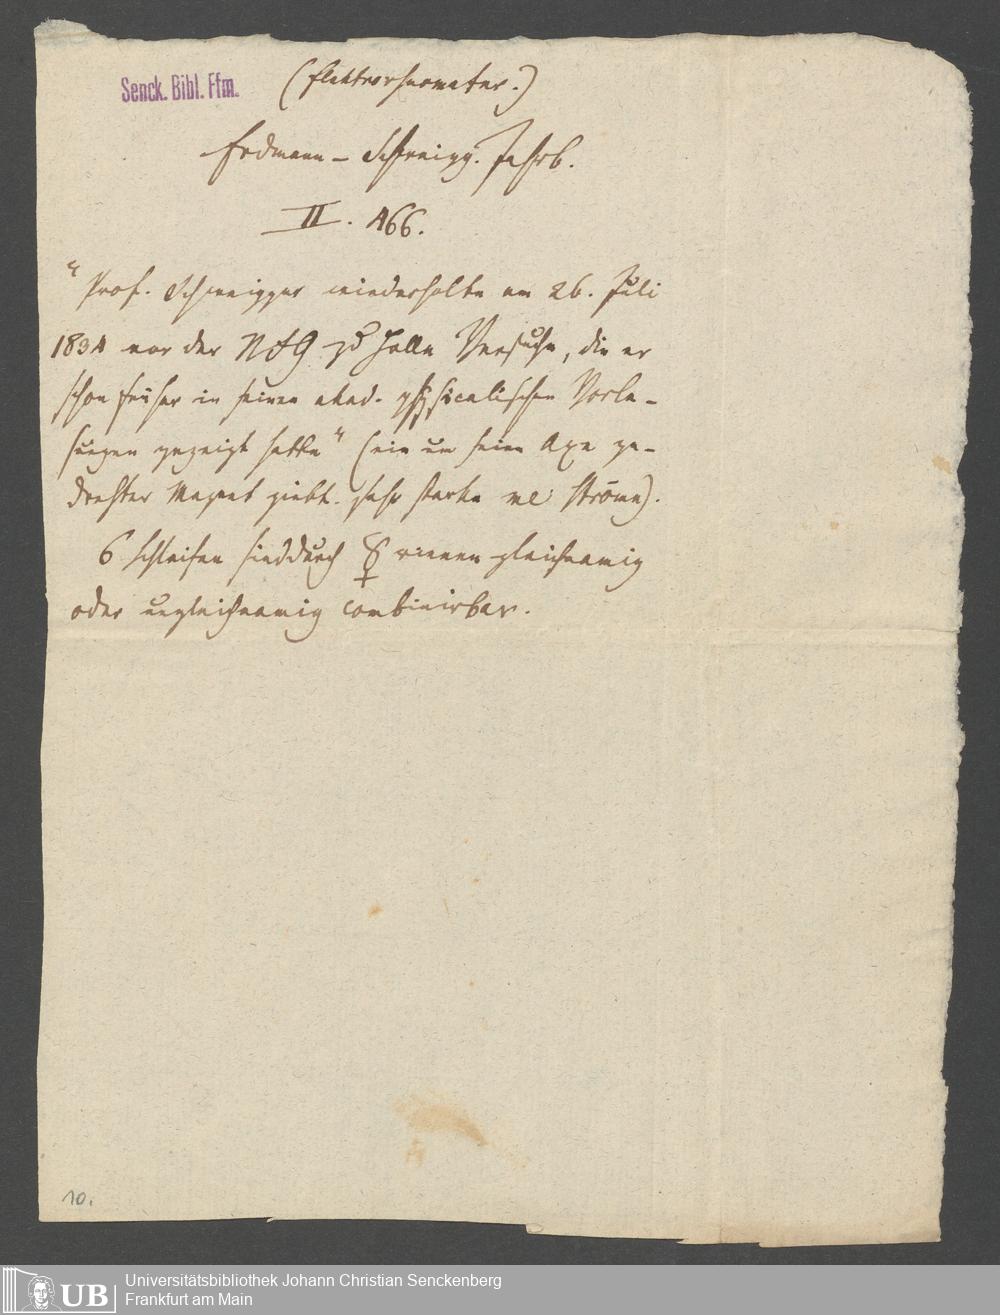 Senck. Bibl. Ffm.
(Elektrothermeter.)
Erdmann – Schweigg. Jahrb.
II. 466.
"Prof. Schweigger wiederholte am 26. Juli
1834 vor der NfG zu Halle Versuche, die er
schon früher in seinen akad. physicalischen Vorle-
sungen gezeigt hatte" (ein um seine Axe ge-
drehter Magnet giebt sehr starke Ströme).
6 Schleifen sind durch ☿ rinnen gleichnamig
oder ungleichnamig combinirbar.
10.
UB
Universitätsbibliothek Johann Christian Senckenberg
Frankfurt am Main